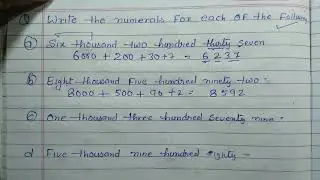 Q Write the numerals For each OF the Following
a Six thousand two hundred thirty seven
6000 + 200 + 30 + 7 = 6237
b Eight thousand Five hundred ninety two =
8000 + 500 + 90 + 2 = 8592
c One thousand three hundred seventy nine =
d Five thousand nine hundred eighty =